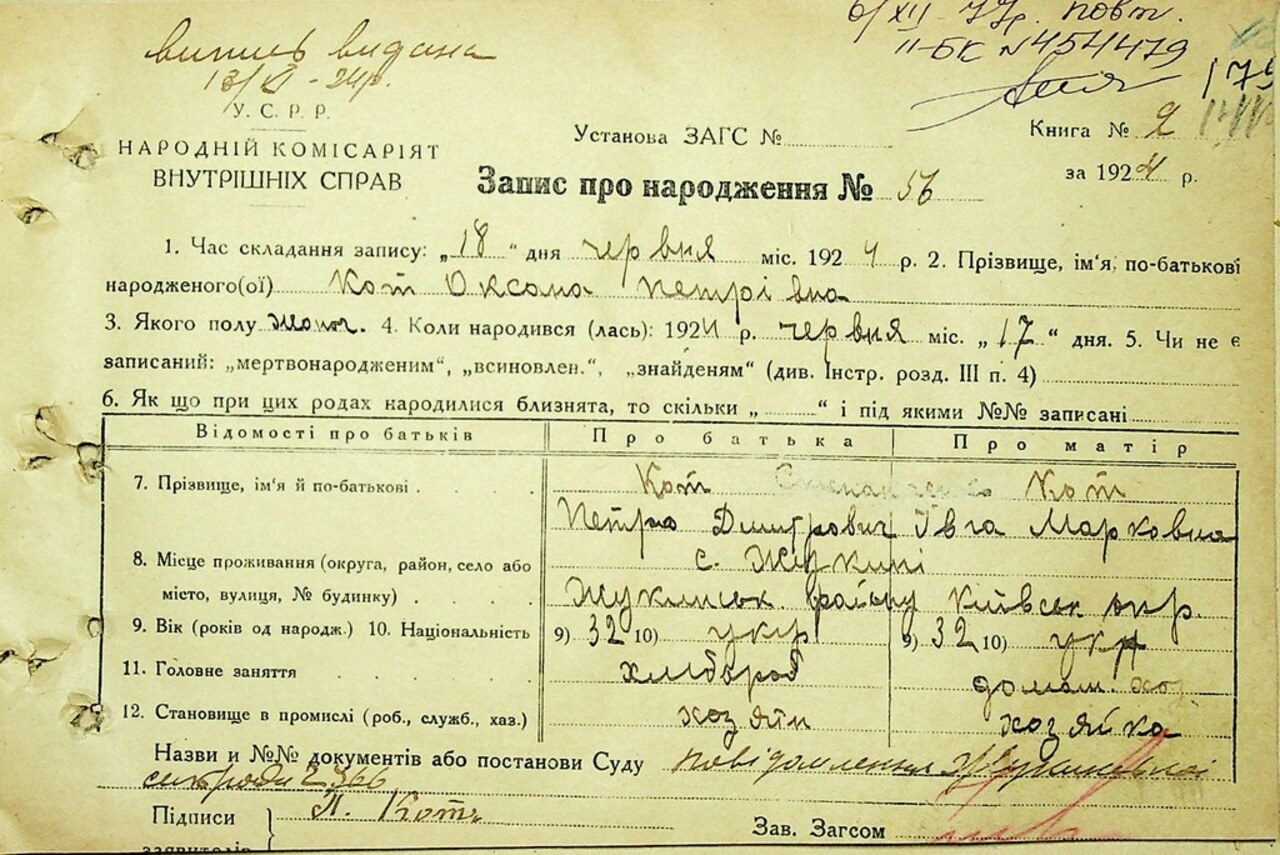 6/XII - 77р. повт.
II-БК №454479
витпсь видана
13/VI - 24р.
У. С. Р. Р.
НАРОДНІЙ КОМІСАРІЯТ
ВНУТРІШНІХ СПРАВ
Установа ЗАГС №
Книга № 2
за 1924 р.
Запис про народження № 56
1. Час складання запису: „18“ дня червня міс. 1924 р. 2. Прізвище, ім'я, по-батькові
народженого(ої) Кот Оксана Петрівна
3. Якого полу жіноч. 4. Коли народився (лась): 1924 р. червня міс. „17“ дня. 5. Чи не є
записаний: „мертвонародженим“, „всиновлен.“, „знайденям“ (див. Інстр. розд. III п. 4)
6. Як що при цих родах народилися близнята, то скільки „ “ і під якими №№ записані
Відомості про батьків Про батька Про матір
7. Прізвище, ім'я й по-батькові Кот Кот
Петро Дмитрович Івга Марковна
8. Місце проживання (округа, район, село або с. Жукині
місто, вулиця, № будинку) Жукинськ. району Київськ окр.
9. Вік (років од народж.) 10. Національність 9) 32 10) укр 9) 32 10) укр
11. Головне заняття хлібороб домаш. хоз
12. Становище в промислі (роб., служб., хаз.) хозяїн хозяйка
Назви и №№ документів або постанови Суду повідомлення
сільради 2366
Підписи П. Кот
заявителів
Зав. Загсом